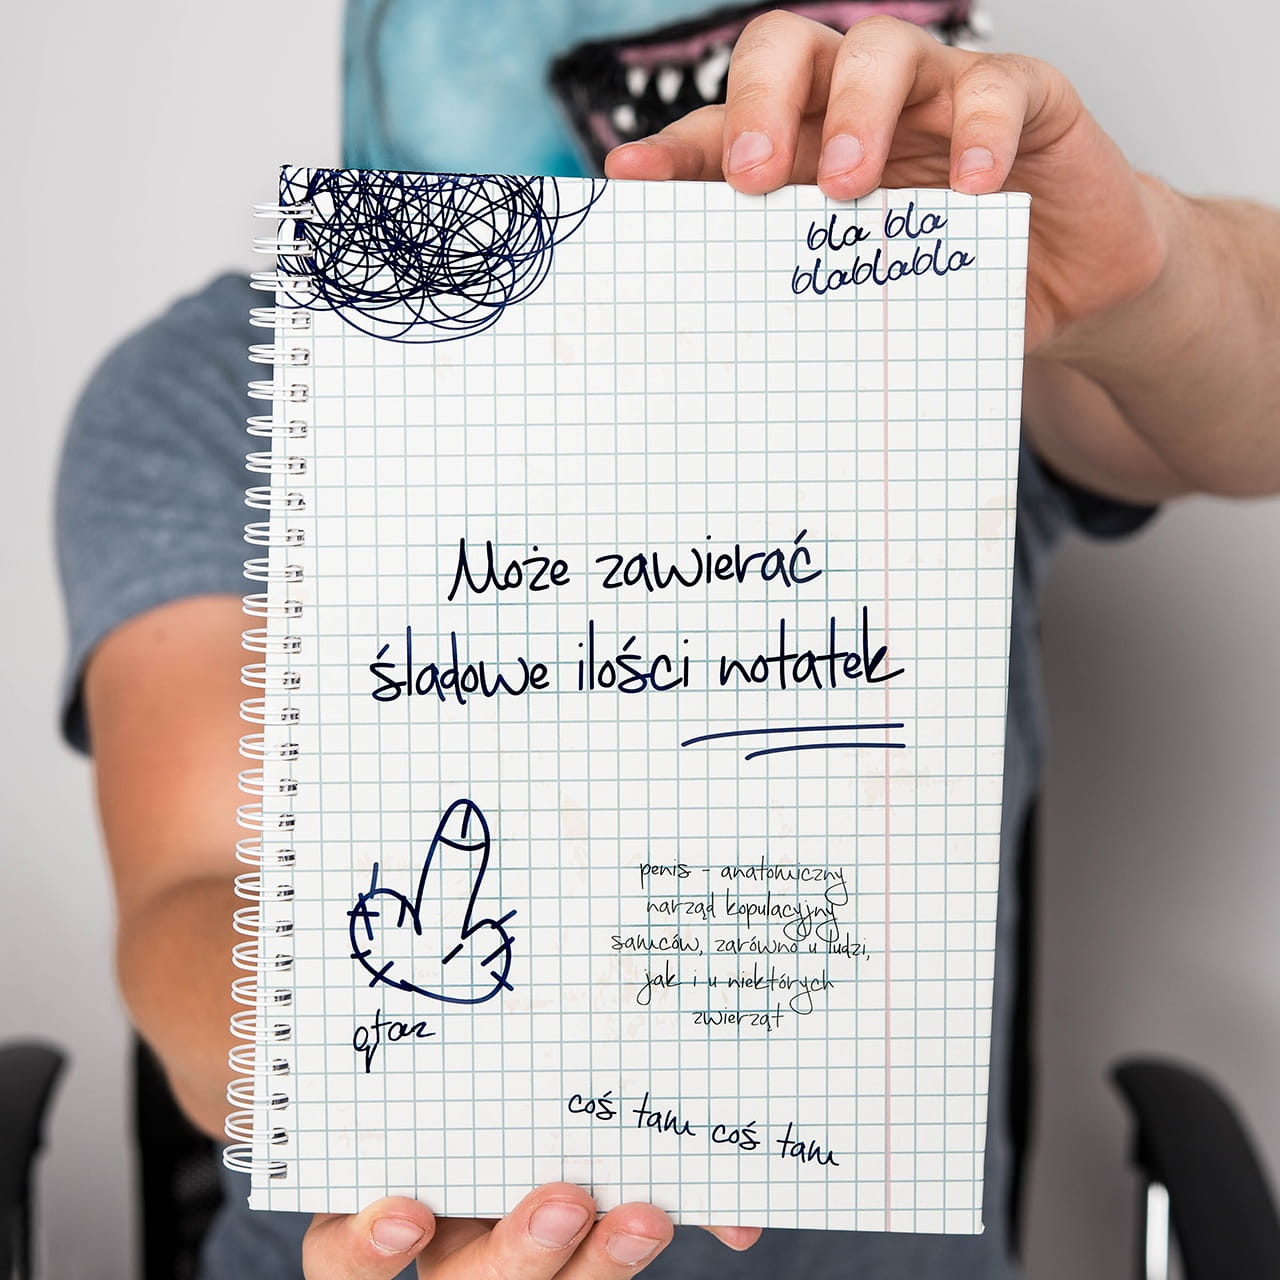 bla bla
blablabla
Może zawierać
śladowe ilości notatek
penis - anatomiczny
narząd kopulacyjny
samców, zarówno u ludzi,
jak i u niektórych
zwierząt
qtaz
coś tam coś tam